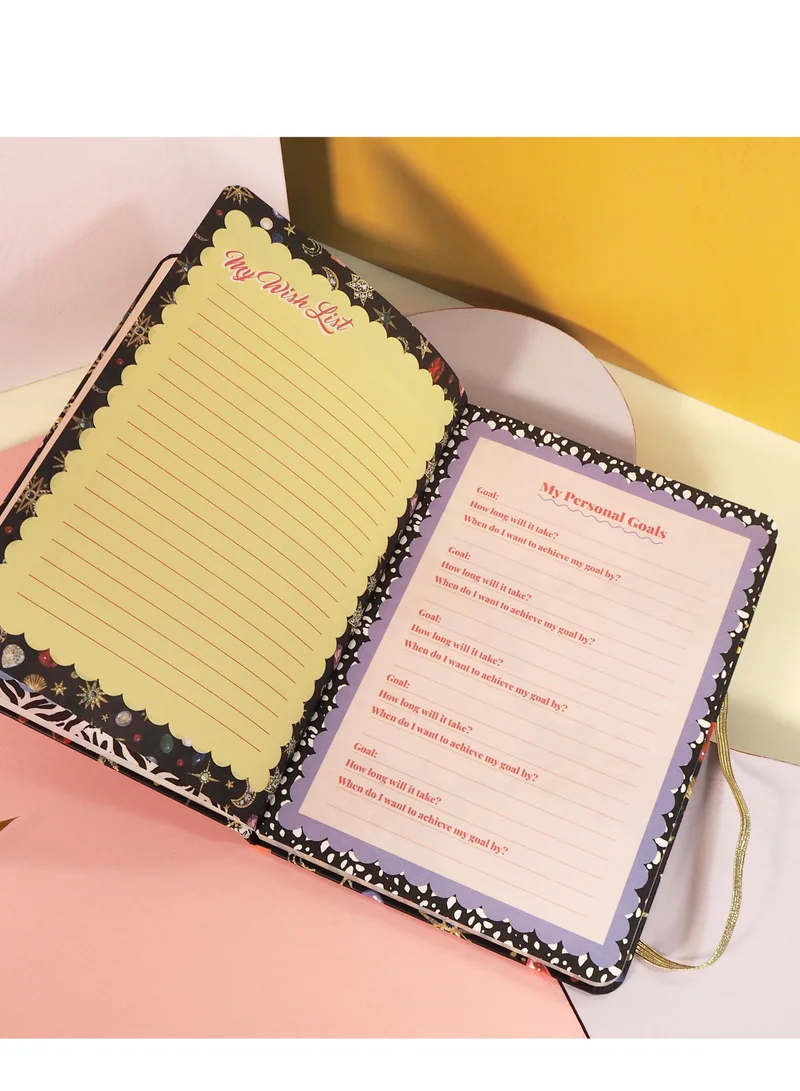 My Wish List
My Personal Goals
Goal:
How long will it take?
When do I want to achieve my goal by?
Goal:
How long will it take?
When do I want to achieve my goal by?
Goal:
How long will it take?
When do I want to achieve my goal by?
Goal:
How long will it take?
When do I want to achieve my goal by?
Goal:
How long will it take?
When do I want to achieve my goal by?